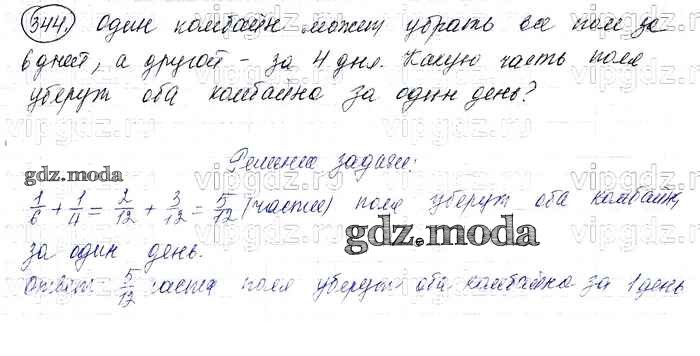 344. Один комбайн может убрать все поле за
6 дней, а другой - за 4 дня. Какую часть поля
уберут оба комбайна за один день?
Решение задачи:
gdz.moda
1/6 + 1/4 = 2/12 + 3/12 = 5/12 (части) поля уберут оба комбайна
за один день.
gdz.moda
Ответ: 5/12 части поля уберут оба комбайна за 1 день